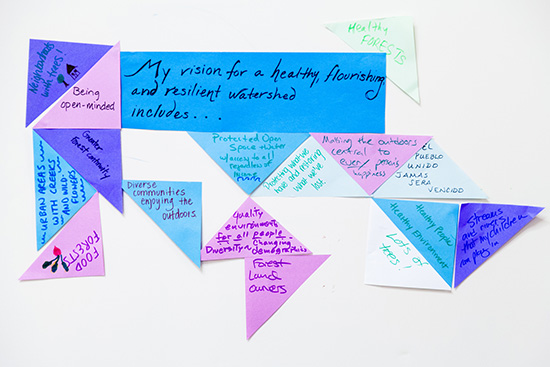 Healthy
FORESTS
Neighborhoods
with trees!
Being
open-minded
My vision for a healthy, flourishing
and resilient watershed
includes...
Gender
Forest Continuity
URBAN AREAS
WITH CREEKS
AND WILD
FLOWERS
FOOD
FORESTS
Diverse
communities
enjoying the
outdoors.
Protected Open
Space + Water
to all
regardless of
Quality
environments
for all people
Diversity + Changing
demographics
Forest
Land
owners
Protecting what we
have and restoring
what we've
lost.
Making the outdoors
central to
every person's
happiness
EL
PUEBLO
UNIDO
JAMAS
SERA
VENCIDO
Healthy People
Healthy Environment
Lots of
trees!
Streams
and rivers
that my children
can play in